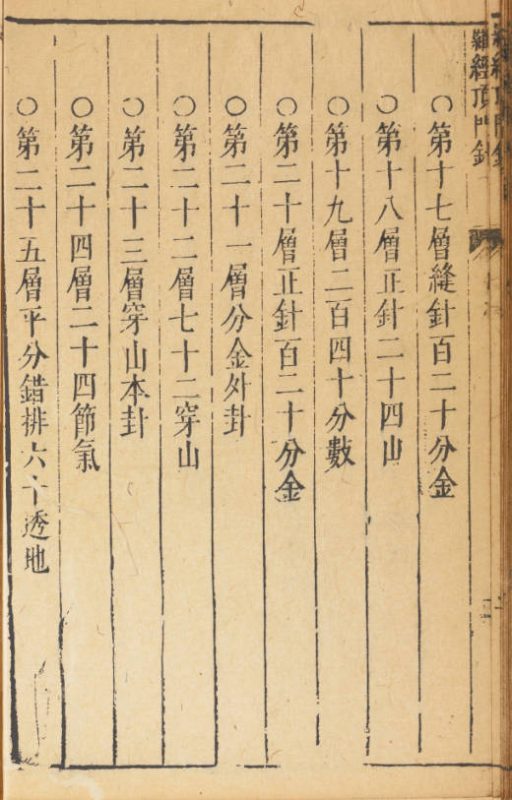 羅經頂門針
○第十七層縫針百二十分金
○第十八層正針二十四山
○第十九層二百四十分數
○第二十層正針百二十分金
○第二十一層分金外卦
○第二十二層七十二穿山
○第二十三層穿山本卦
○第二十四層二十四節氣
○第二十五層平分錯排六十透地